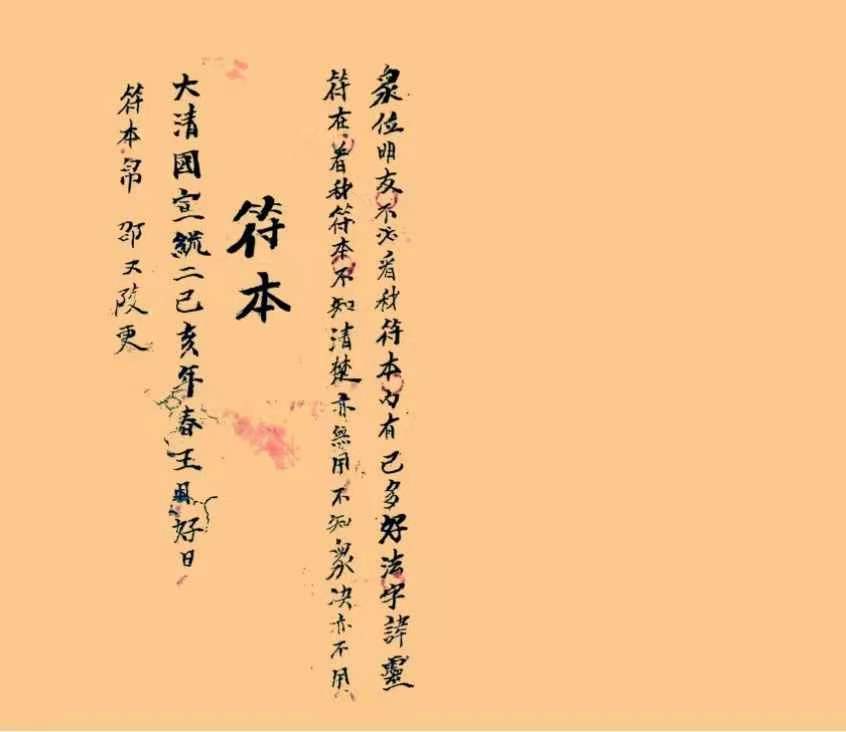 众位明友不必看我符本内有已多好法字諱靈
符在看我符本不知清楚亦無用不知众决亦不用
符本
大清國宣統二己亥年春王月好日
符本帋 邵天陵更